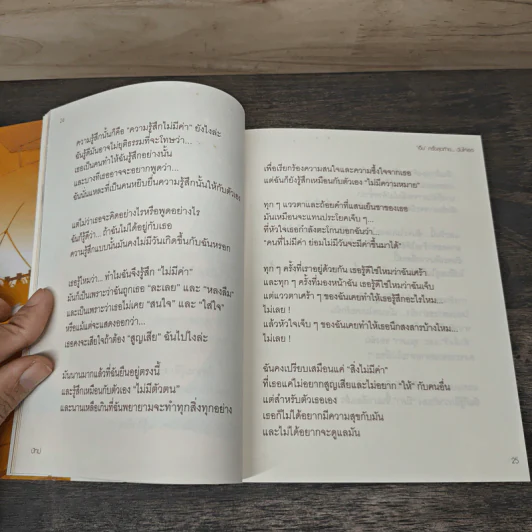 ความรู้สึกนั้นก็คือ "ความรู้สึกไม่มีค่า" ยังไงล่ะ
ฉันรู้ดีมันอาจไม่ยุติธรรมที่จะโทษว่า...
เธอเป็นคนทำให้ฉันรู้สึกอย่างนั้น
และบางทีเธออาจจะอยากพูดว่า
ฉันนั่นแหละที่เป็นคนหยิบยื่นความรู้สึกนั้นให้กับตัวเอง
แต่ไม่ว่าเธอจะคิดอย่างไรหรือพูดอย่างไร
ฉันก็รู้ดีว่า... ถ้าฉันไม่ได้อยู่กับเธอ
ความรู้สึกแบบนั้นมันคงไม่มีวันเกิดขึ้นกับฉันหรอก
เธอรู้ไหมว่า... ทำไมฉันจึงรู้สึก "ไม่มีค่า"
มันก็เป็นเพราะว่าฉันถูกเธอ "ละเลย" และ "หลงลืม"
และเป็นเพราะว่าเธอไม่เคย "สนใจ" และ "ใส่ใจ"
หรือแม้แต่จะแสดงออกว่า...
เธอคงจะเสียใจถ้าต้อง "สูญเสีย" ฉันไปไงล่ะ
มันนานมากแล้วที่ฉันยืนอยู่ตรงนี้
และรู้สึกเหมือนกับตัวเอง "ไม่มีตัวตน"
และนานเหลือเกินที่ฉันพยายามจะทำทุกสิ่งทุกอย่าง
เพื่อเรียกร้องความสนใจและความซึ้งใจจากเธอ
แต่ฉันก็ยังรู้สึกเหมือนกับตัวเอง "ไม่มีความหมาย"
ทุก ๆ แววตาและถ้อยคำที่แสนเย็นชาของเธอ
มันเหมือนจะแทนประโยคเจ็บ ๆ...
ที่หัวใจเธอกำลังตะโกนบอกฉันว่า...
"คนที่ไม่มีค่า ย่อมไม่มีวันจะมีค่าขึ้นมาได้"
ทุก ๆ ครั้งที่เราอยู่ด้วยกัน เธอรู้ดีใช่ไหมว่าฉันเศร้า
และทุก ๆ ครั้งที่มองหน้าฉัน เธอรู้ดีใช่ไหมว่าฉันเจ็บ
แต่แววตาเศร้า ๆ ของฉันเคยทำให้เธอรู้สึกอะไรไหม...
ไม่เลย !
แล้วหัวใจเจ็บ ๆ ของฉันเคยทำให้เธอนึกสงสารบ้างไหม...
ไม่เลย !
ฉันคงเปรียบเสมือนแค่ "สิ่งไม่มีค่า"
ที่เธอแค่ไม่อยากสูญเสียและไม่อยาก "ให้" กับคนอื่น
แต่สำหรับตัวเธอเอง
เธอก็ไม่ได้อยากมีความสุขกับมัน
และไม่ได้อยากจะดูแลมัน
25